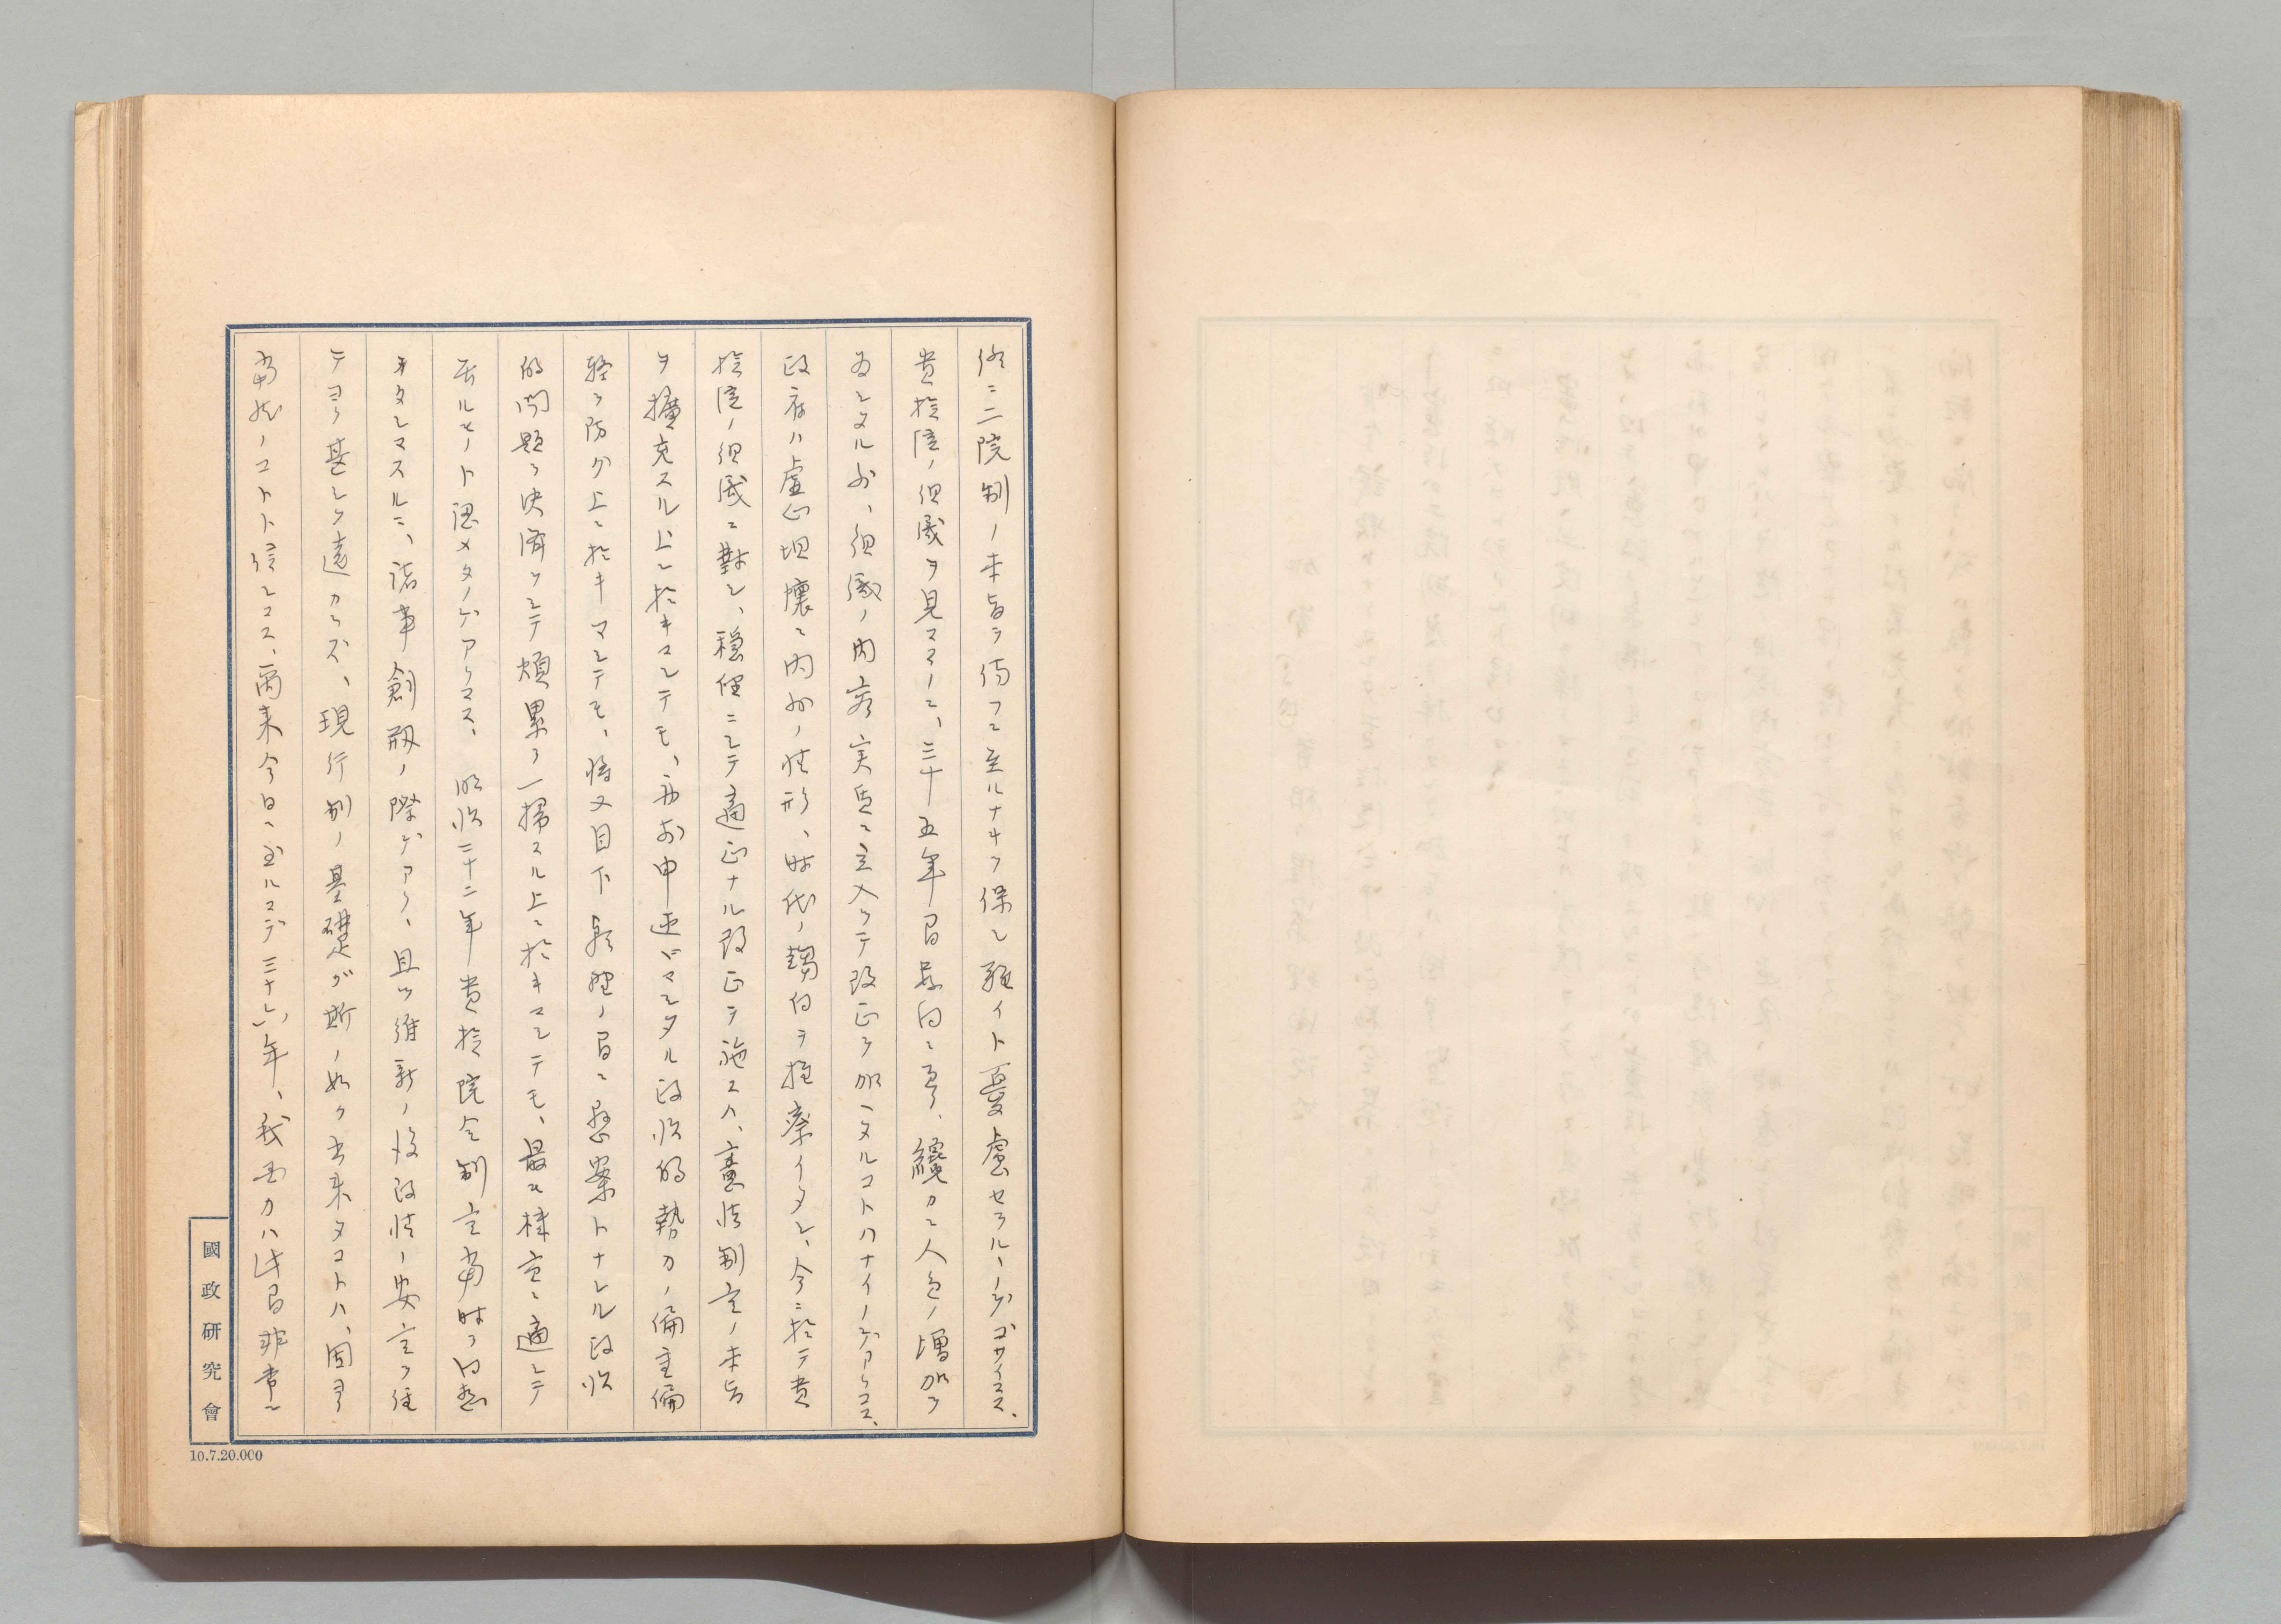 終ニ二院制ノ本旨ヲ傷フニ至ルナキヲ保シ難イト憂慮セラルヽノデゴザイマス、
貴族院ノ組織ヲ見マスルニ、三十五年間数回ニ亘リ、纔カニ人員ノ増加ヲ
為シタル外、組織ノ内容実質ニ立入リテ改正ヲ加ヘタルコトハナイノデアリマス、
政府ハ虚心坦懐ニ内外ノ情形、時代ノ趨向ヲ推察イタシ、今ニ於テ貴
族院ノ組織ニ対シ、穏健ニシテ適正ナル改正ヲ施スハ、憲法制定ノ本旨
ヲ擴充スル上ニ於キマシテモ、再前申述ベマシタル政治的勢力ノ偏重偏
軽ヲ防グ上ニ於キマシテモ、将又目下朝野ノ間ニ懸案トナレル政治
的問題ヲ決済ヲシテ煩累ヲ一掃スル上ニ於キマシテモ、最モ機宜ニ適シテ
居ルモノト認メタノデアリマス、明治二十二年貴族院令制定当時ヲ回想
キタシマスルニ、諸事創剏ノ際デアリ、且ツ維新ノ後政情ノ安定ヲ経
テヨリ甚シク遠カラズ、現行制ノ基礎ガ斯ノ如ク出来タコトハ、固ヨリ
当然ノコトト信シマス、爾来今日ニ至ルマデ三十六年、我国力ハ此間非常ニ
國政研究會
10.7.20.000